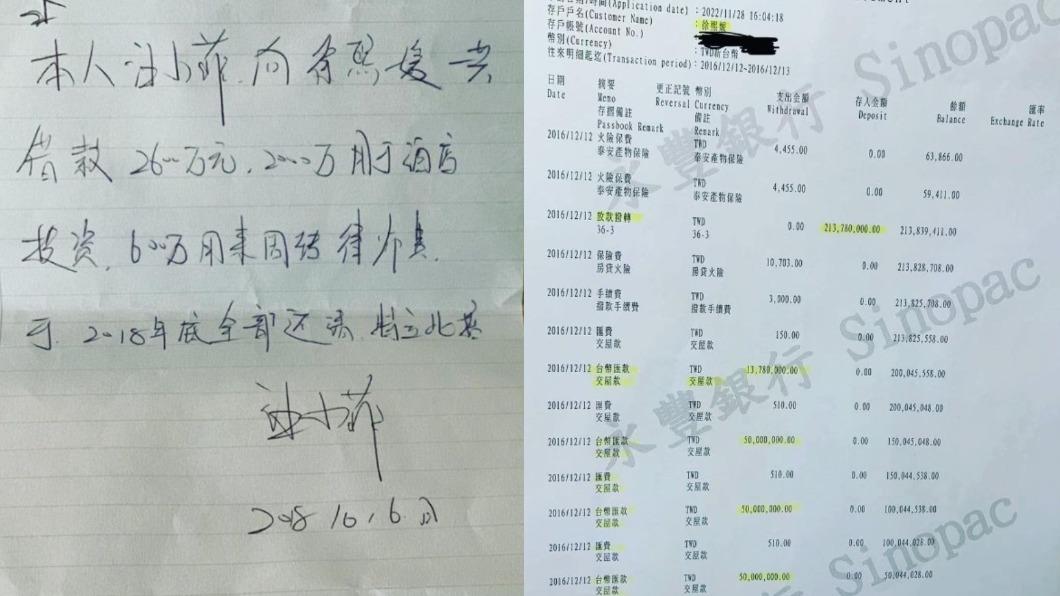 本人汪小菲向徐熙媛共
借款2600万元,2000万用于酒店
投资,600万用来周转律师费.
于2018年底全部还清.特立此字
汪小菲
2018,6,6日
(Application date) : 2022/11/28 16:04:18
存戶戶名(Customer Name) : 徐熙媛
存戶帳號(Account No.) :
幣別(Currency) : TWD新台幣
往來明細起迄(Transaction period) : 2016/12/12~2016/12/13
日期 摘要 更正記號 幣別 支出金額 存入金額 餘額 匯率
Date Memo Reversal Currency Withdrawal Deposit Balance Exchange Rate
存摺備註 備註
Passbook Remark Remark
2016/12/12 火險保費 TWD 4,455.00 0.00 63,866.00
泰安產物保險 泰安產物保險
2016/12/12 火險保費 TWD 4,455.00 0.00 59,411.00
泰安產物保險 泰安產物保險
2016/12/12 放款撥轉 TWD 0.00 213,780,000.00 213,839,411.00
36-3 36-3
2016/12/12 保險費 TWD 10,703.00 0.00 213,828,708.00
房貸火險 房貸火險
2016/12/12 手續費 TWD 3,000.00 0.00 213,825,708.00
撥款手續費 撥款手續費
2016/12/12 匯費 TWD 150.00 0.00 213,825,558.00
交屋款 交屋款
2016/12/12 台幣匯款 TWD 13,780,000.00 0.00 200,045,558.00
交屋款 交屋款
2016/12/12 匯費 TWD 510.00 0.00 200,045,048.00
交屋款 交屋款
2016/12/12 台幣匯款 TWD 50,000,000.00 0.00 150,045,048.00
交屋款 交屋款
2016/12/12 匯費 TWD 510.00 0.00 150,044,538.00
交屋款 交屋款
2016/12/12 台幣匯款 TWD 50,000,000.00 0.00 100,044,538.00
交屋款 交屋款
2016/12/12 匯費 TWD 510.00 0.00 100,044,028.00
交屋款 交屋款
2016/12/12 台幣匯款 TWD 50,000,000.00 0.00 50,044,028.00
交屋款 交屋款
永豐銀行 Sinopac
永豐銀行 Sinopac
永豐銀行 Sinopac